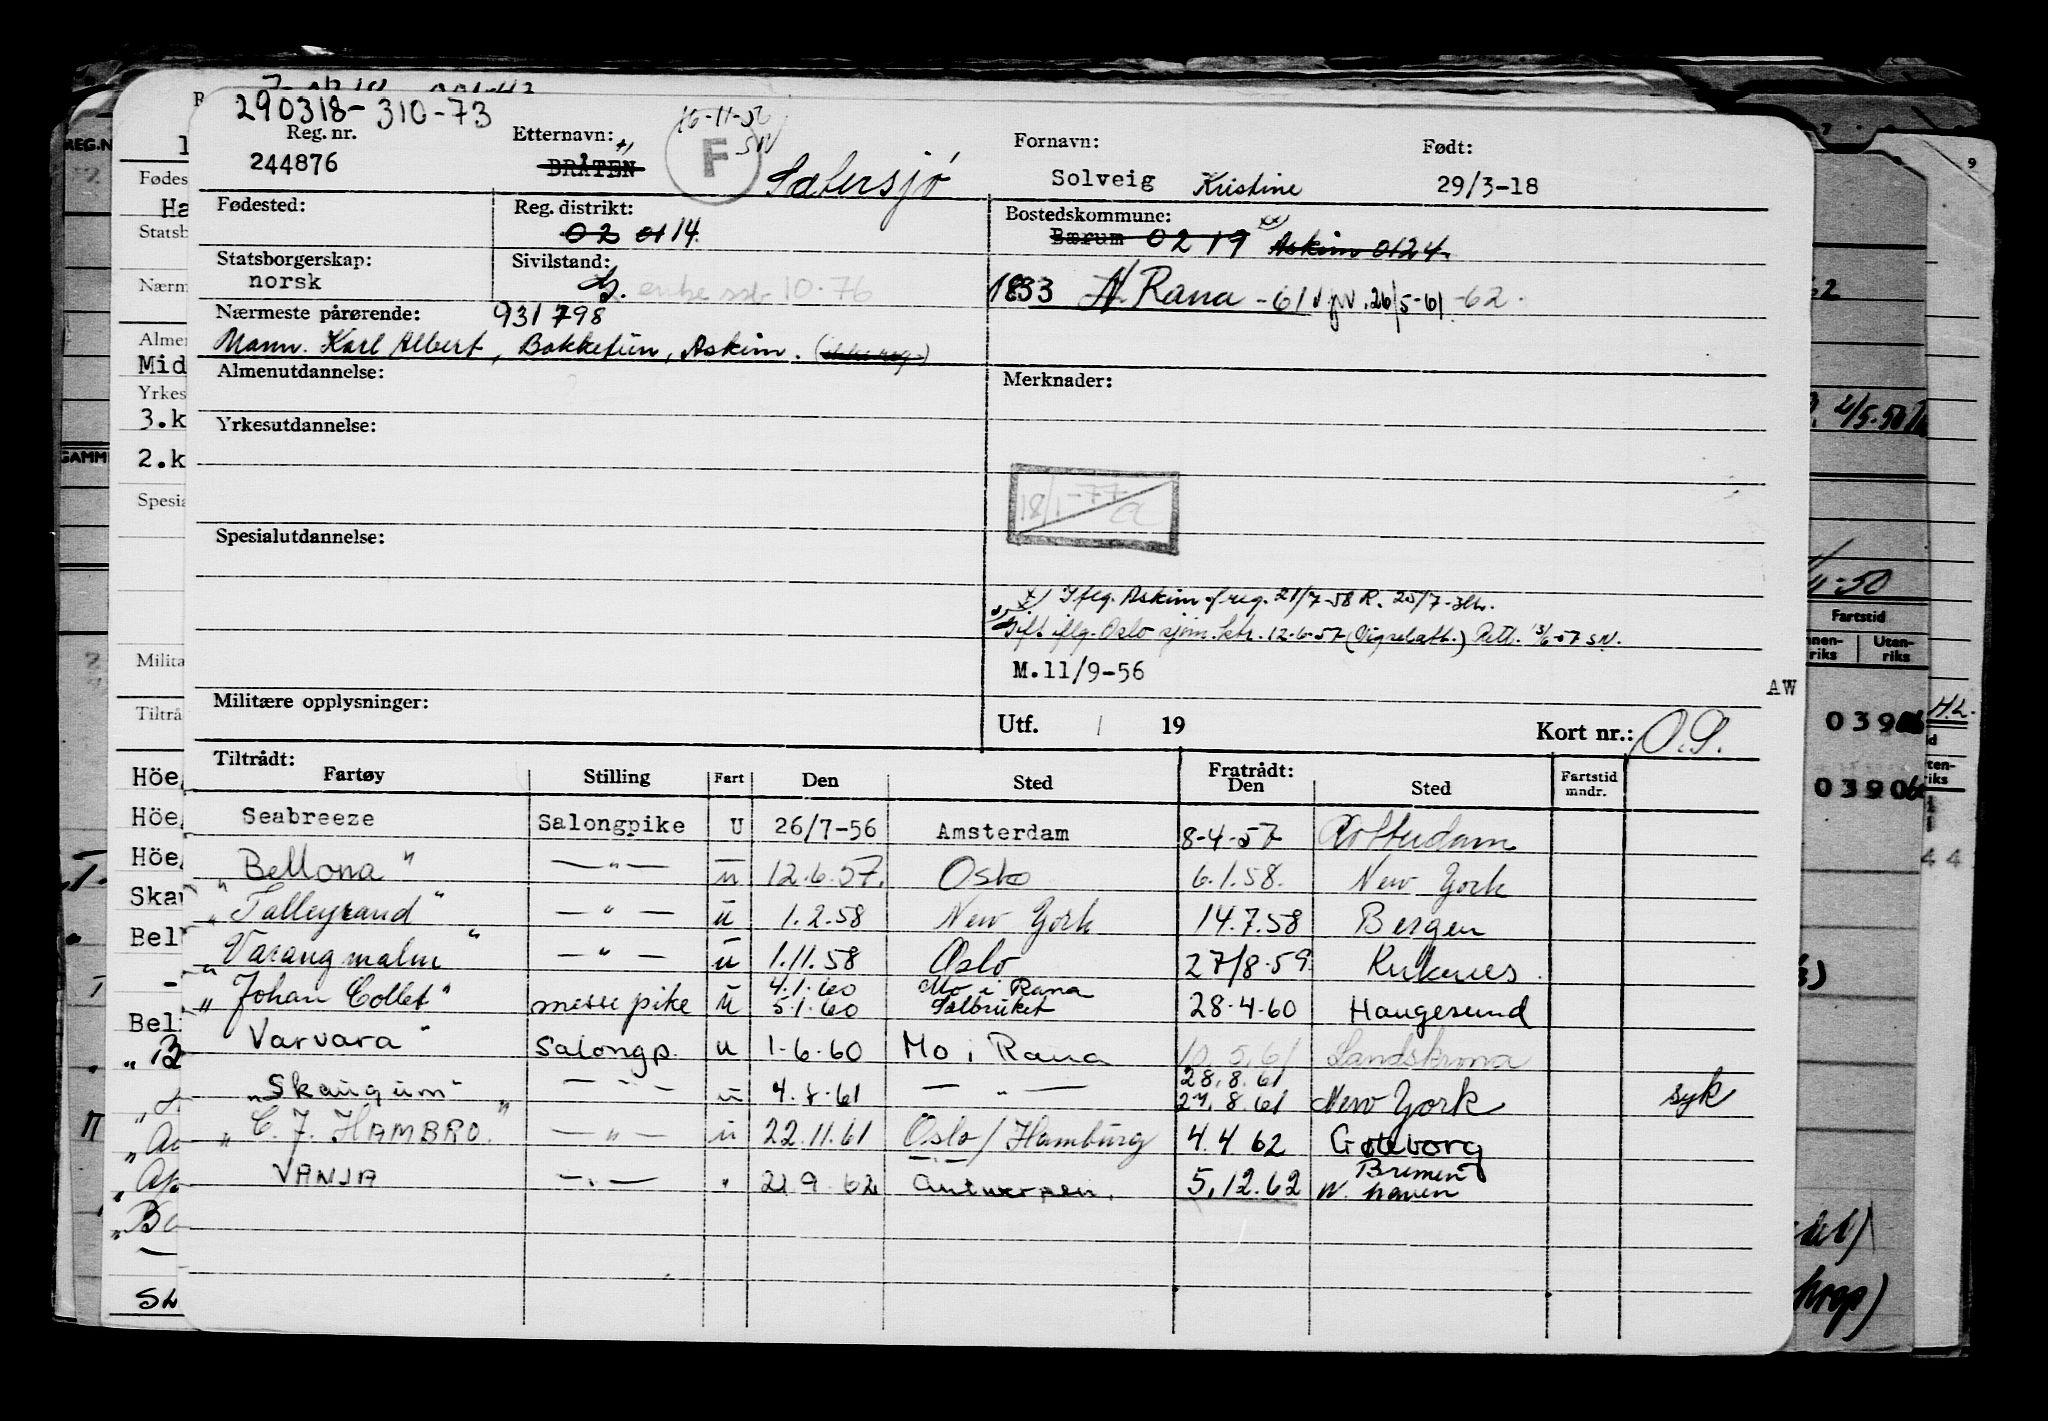 290318-310-73
Reg. nr.
244876
Etternavn:
BRÅTEN
16-11-56
SN
F
Sætersjø
Fornavn:
Solveig Kristine
Født:
29/3-18
Fødested:
Reg. distrikt:
02 01 14
Bostedskommune:
Bærum 0219 Askim 0124
Statsborgerskap:
norsk
Sivilstand:
enke 10-76
1833 N Rana -61 26/5-61 -62
Nærmeste pårørende:
931798
Mann. Karl Albert, Askim.
Almenutdannelse:
Merknader:
Yrkesutdannelse:
18/1-77
Spesialutdannelse:
x) Iflg. Askim s/reg. 21/7-58 R. 25/7-
Gift iflg. Oslo sjøm.ktr. 12-6-57 (Vigselatt.) Rett. 13/6-57 SN.
M.11/9-56
AW
Militære opplysninger:
Utf. / 19
Kort nr.: O.S.
Tiltrådt:
Fartøy Stilling Fart Den Sted
Fratrådt:
Den Sted
Fartstid
mndr.
Seabreeze Salongpike U 26/7-56 Amsterdam 8-4-57 Rotterdam
Bellona" — " — u 12.6.57. Oslo 6.1.58. New York
"Talleyrand" — " — u 1.2.58 New York 14.7.58 Bergen
"Varangmalm" — " — u 1.11.58 Oslo 27/8-59 Kirkenes
"Johan Collet" messepike u 4.1.60 Mo i Rana
5.1.60 28-4-60 Haugesund
"Varvara" Salongp. u 1-6-60 Mo i Rana 10.5.61 Landskrona
"Skaugum" — " — u 4.8.61 — " — 28.8.61
27.8.61 New York syk
"C. J. HAMBRO." — " — u 22.11.61 Oslo/Hamburg 4.4 62 Göteborg
VANJA — " — " 21.9.62 Antwerpen. 5.12.62 Bremen
haven